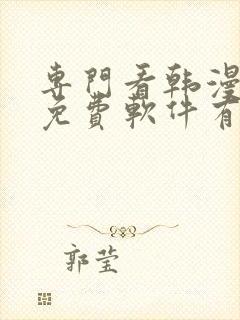 専門看韩漫
免費軟件有
郭莹